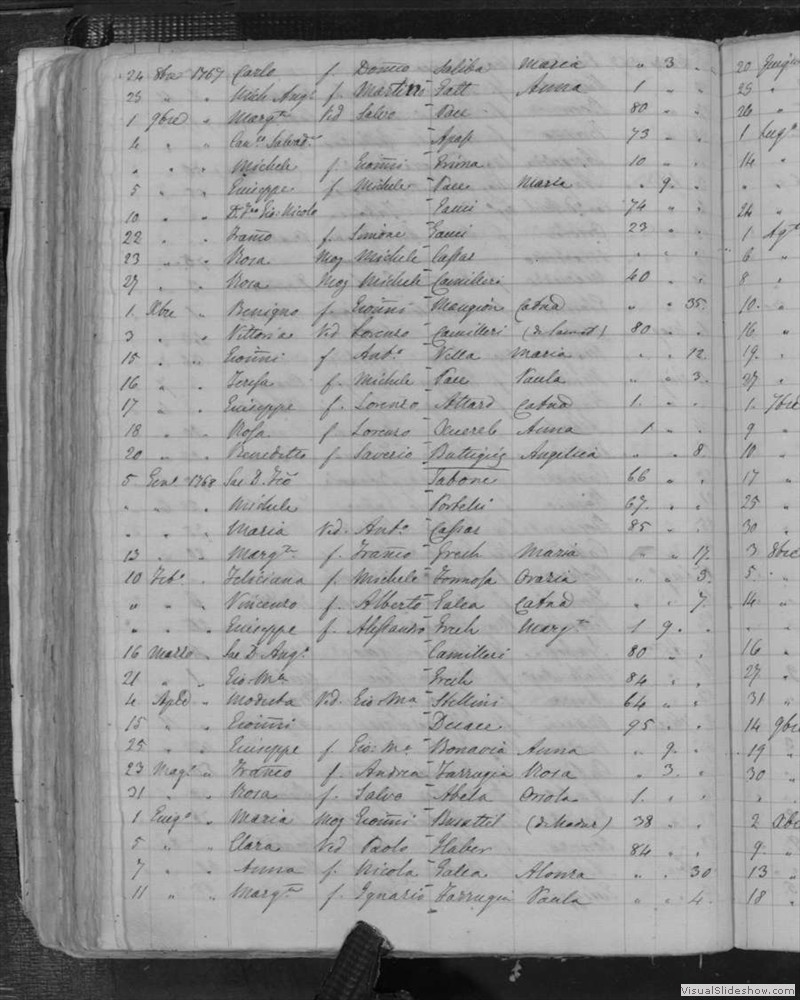 24 8bre 1767 Carlo f. Dom̃co Saliba Maria " 3 "
25 " " Mich Angº f. Martini Gatt Anna 1 " "
1 9bre " Margta Vid Salvo Pace 80 " "
4 " " Canco Salvadre Apap 73 " "
" " " Michele f. Giom̃i Grima 10 " "
5 " " Giuseppe f. Michele Pace Maria " 9 "
10 " " Gio: Nicolo 74 " "
22 " " Franco f. Simone Gauci 23 " "
23 " " Rosa Mog Michele Cassar " " "
27 " " Rosa Mog Michele Camilleri 40 " "
1 Xbre " Benigno f. Giom̃i Mangion Catna " " 35
3 " " Vittoria Vid Lorenzo Camilleri 80 " "
15 " " Giom̃i f. Antº Vella Maria " " 12
16 " " Teresa f. Michele Pace Paula " " 3
17 " " Giuseppe f. Lorenzo Attard Catna 1 " "
18 " " Rosa f. Lorenzo Xuereb Anna 1 " "
20 " " Benedetto f. Saverio Buttigieg Angelica " " 8
5 Genº 1768 Sac D. Tabone 66 " "
" " " Michele Portelli 67 " "
" " " Maria Vid. Antº Cassar 85 " "
13 " " Margta f. Franco Grech Maria " " 17
10 Febº " Feliciana f. Michele Formosa Grazia " " 3
" " " Vincenzo f. Alberto Galea Catna " " 7
" " " Giuseppe f. Alessandro Grech Margta 1 9 "
16 Marzo " Sac D. Angº Camilleri 80 " "
21 " " Gio: Ma Grech 84 " "
4 Aple " Modesta Vid. Gio: Ma Stellini 64 " "
15 " " Giom̃i 95 " "
25 " " Giuseppe f. Gio: Ma Bonavia Anna " 9 "
23 Magº " Franco f. Andrea Farrugia Rosa " 3 "
31 " " Rosa f. Salvo Abela Orsola 1 " "
1 Giugº " Maria Mog Giom̃i Busuttil 38 " "
5 " " Clara Vid Paolo Haber 84 " "
7 " " Anna f. Nicola Galea Alonza " " 30
11 " " Margta f. Ignazio Farrugia Paula " " 4
20 Giug
25 "
26 "
1 Lugº
14 "
" "
24 "
1 Agº
6 "
8 "
10 "
16 "
19 "
27 "
1 7bre
9 "
10 "
17 "
25 "
30 "
3 8bre
5 "
14 "
" "
16 "
27 "
31 "
14 9bre
19 "
30 "
" "
2 Xbre
9 "
13 "
18 "
VisualSlideshow.com